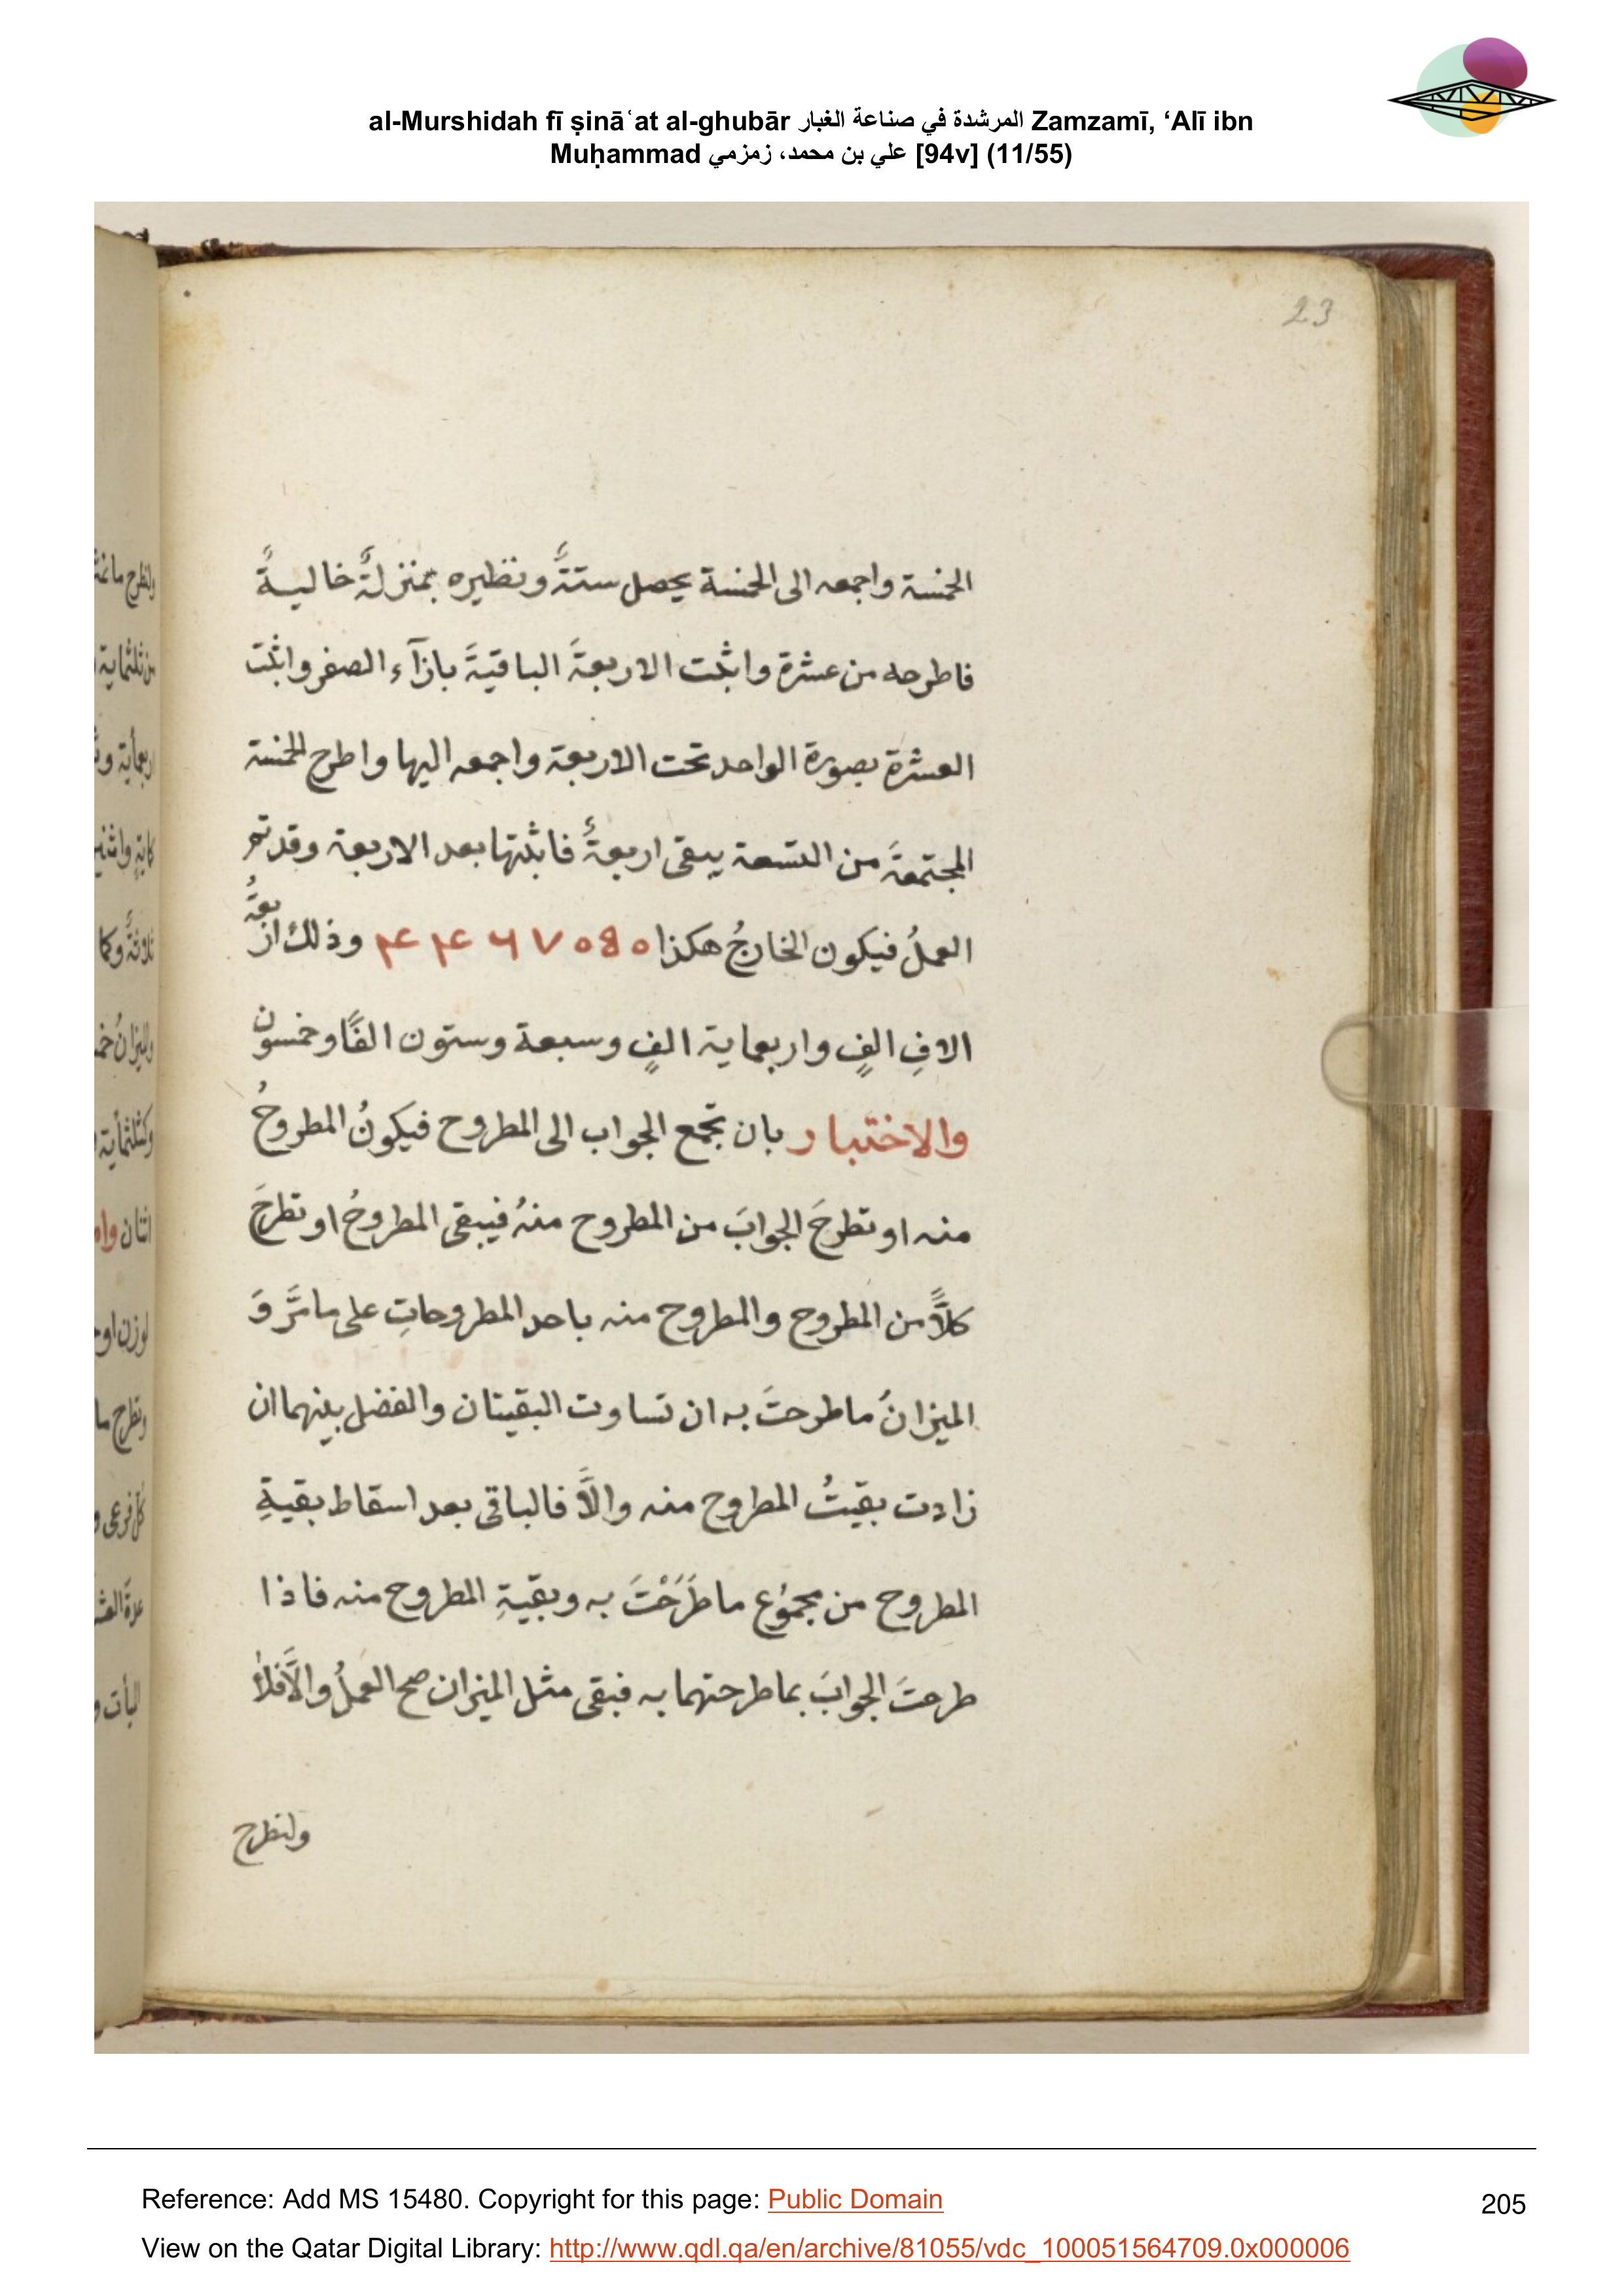 al-Murshidah fī ṣinā‘at al-ghubār المرشدة في صناعة الغبار Zamzamī, ‘Alī ibn
Muḥammad علي بن محمد، زمزمي [94v] (11/55)
23
الخمسة واجمعه الى الخمسة يحصل ستةً ونظيره بمنزلةٍ خاليةً
فاطرحه من عشرة واثبت الاربعةَ الباقيةَ بازآء الصفر واثبت
العشرة بصورة الواحد تحت الاربعة واجمعه اليها واطرح الخمسة
المجتمعةَ من التسعة يبقى اربعةٌ فاثبتها بعد الاربعة وقد تم
العملُ فيكون الخارجُ هكذا ۴۴۶۷۰۵۰ وذلك اربعةُ
الافِ الفٍ واربعماية الفٍ وسبعة وستون الفًا وخمسون
والاختبار بان تجمع الجواب الى المطروح فيكونُ المطروحُ
منه او تطرحَ الجوابَ من المطروح منهُ فيبقى المطروحُ او تطرحَ
كلاًّ من المطروح والمطروح منه باحد المطروحاتِ على ما مَرَّ وَ
الميزانُ ما طرحتَ به ان تساوت البقيتان والفضل بينهما ان
زادت بقيتُ المطروح منه والاَّ فالباقى بعد اسقاط بقيةِ
المطروح من مجموع ما طَرَحْتَ به وبقيةِ المطروح منه فاذا
طرحتَ الجوابَ بما طرحتهما به فبقى مثل الميزان صح العملُ والاَّ فلا
ولنطرح
Reference: Add MS 15480. Copyright for this page: Public Domain
205
View on the Qatar Digital Library: http://www.qdl.qa/en/archive/81055/vdc_100051564709.0x000006